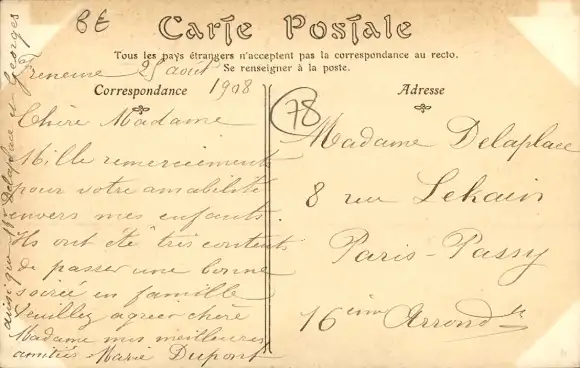 BE
Carte Postale
Tous les pays étrangers n'acceptent pas la correspondance au recto.
Se renseigner à la poste.
Correspondance
Adresse
Freneuse 25 août
1908
78
Chère Madame
Mille remerciements
pour votre amabilité
envers mes enfants.
Ils ont été très contents
de passer une bonne
soirée en famille
Veuillez agréer chère
Madame mes meilleures
amitiés Marie Dupont
ainsi que Mr Delaplace et Georges
Madame Delaplace
8 rue Lekain
Paris-Passy
16ième Arrondt